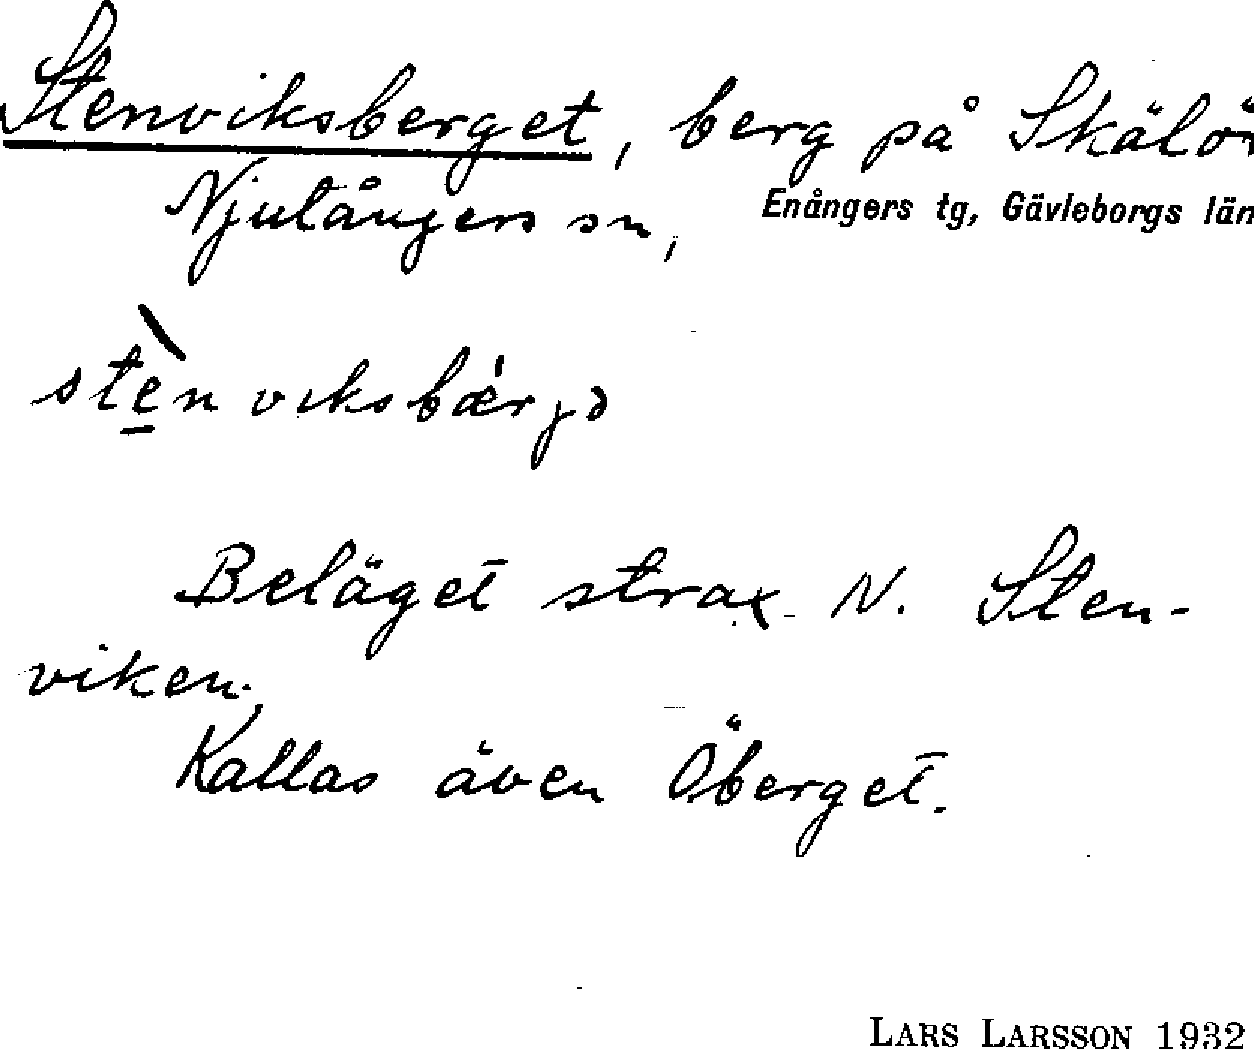 Stenviksberget, berg på Skålön
Njutångers sn, Enångers tg, Gävleborgs län
stènviksbǽrjə
Beläget strax N. Sten-
viken.
Kallas även Öberget.
LARS LARSSON 1932